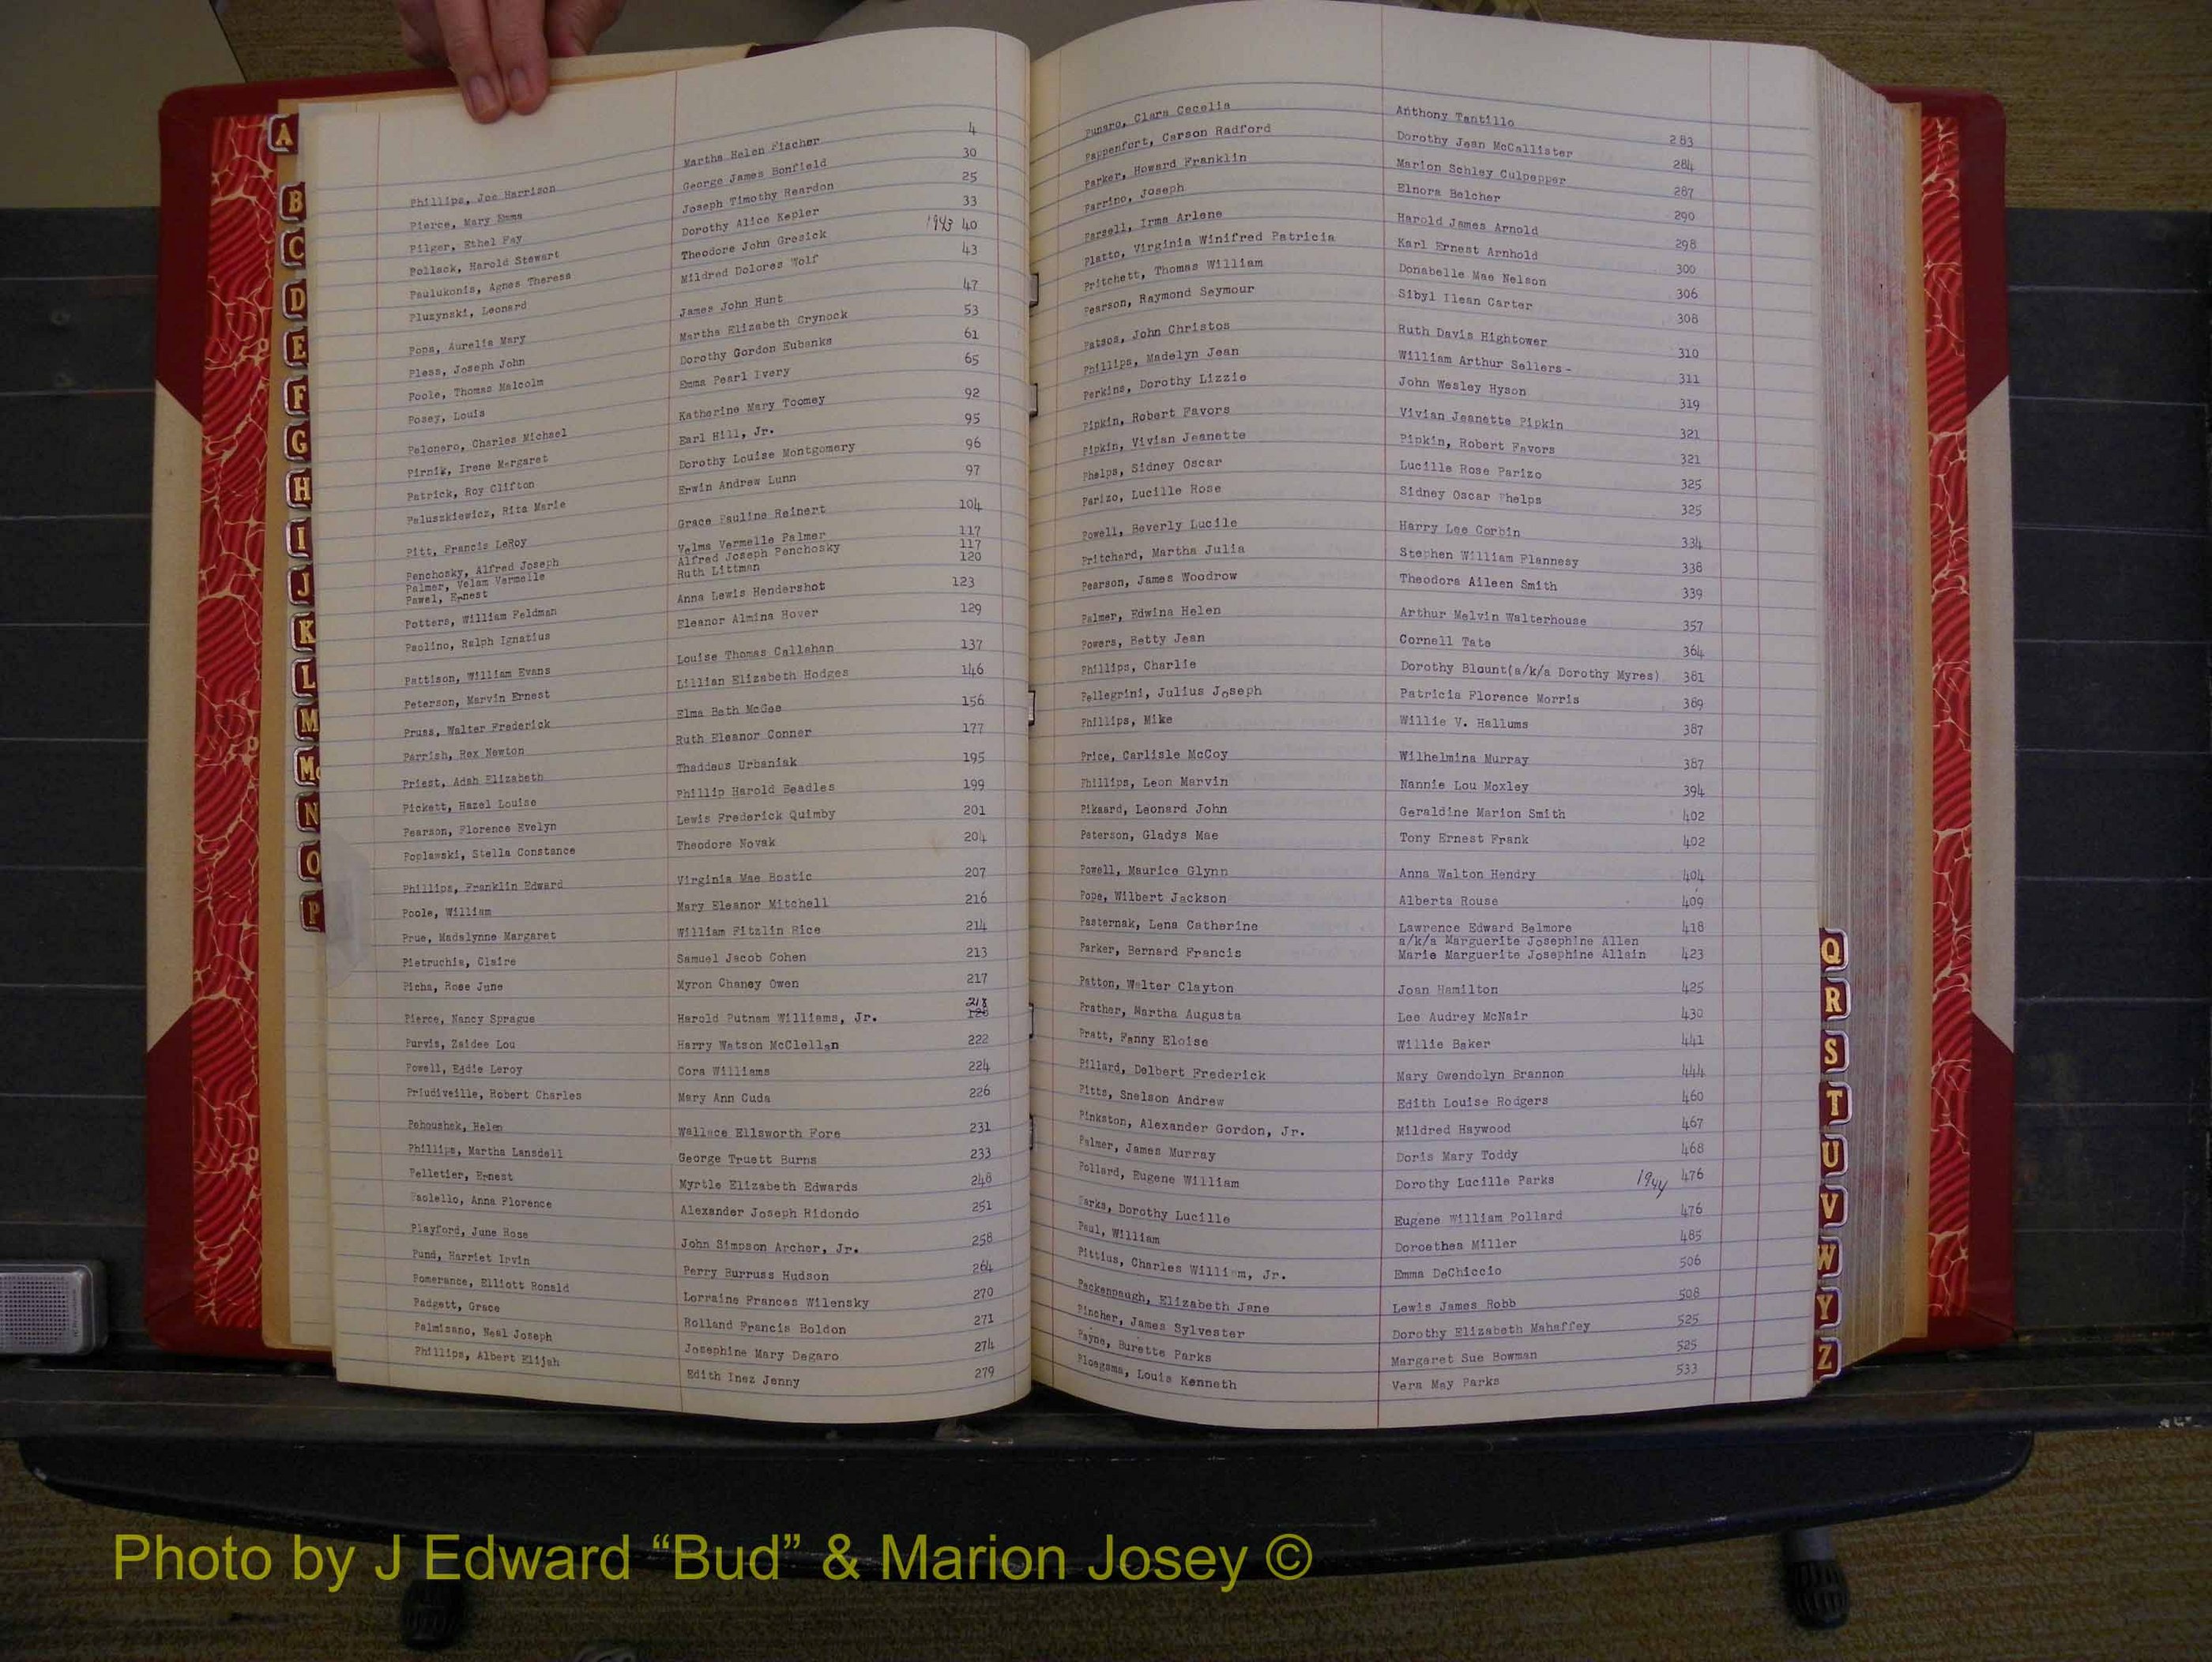 A
B
C
D
E
F
G
H
I
J
K
L
M
Mc
N
O
P
Phillips, Joe Harrison Martha Helen Fischer 4
Pierce, Mary Emma George James Bonfield 30
Pilger, Ethel Fay Joseph Timothy Reardon 25
Pollack, Harold Stewart Dorothy Alice Kepler 33
Paulukonis, Agnes Theresa Theodore John Gresick 1943 40
Pluzynski, Leonard Mildred Dolores Wolf 43
Pops, Aurelia Mary James John Hunt 47
Pless, Joseph John Martha Elizabeth Crynock 53
Poole, Thomas Malcolm Dorothy Gordon Eubanks 61
Posey, Louis Emma Pearl Ivery 65
Pelonero, Charles Michael Katherine Mary Toomey 92
Pirnik, Irene Margaret Earl Hill, Jr. 95
Patrick, Roy Clifton Dorothy Louise Montgomery 96
Paluszkiewicz, Rita Marie Erwin Andrew Lunn 97
Pitt, Francis LeRoy Grace Pauline Reinert 104
Penchosky, Alfred Joseph Velma Vermelle Palmer 117
Palmer, Velam Vermelle Alfred Joseph Penchosky 117
Pawel, Ernest Ruth Littman 120
Potters, William Feldman Anna Lewis Hendershot 123
Paolino, Ralph Ignatius Eleanor Almina Hover 129
Pattison, William Evans Louise Thomas Callahan 137
Peterson, Marvin Ernest Lillian Elizabeth Hodges 146
Pruss, Walter Frederick Elma Beth McGee 156
Parrish, Rex Newton Ruth Eleanor Conner 177
Priest, Adah Elizabeth Thaddeus Urbaniak 195
Pickett, Hazel Louise Phillip Harold Beadles 199
Pearson, Florence Evelyn Lewis Frederick Quimby 201
Poplawski, Stella Constance Theodore Novak 204
Phillips, Franklin Edward Virginia Mae Bostic 207
Poole, William Mary Eleanor Mitchell 216
Prue, Madalynne Margaret William Fitzlin Rice 214
Pietruchia, Claire Samuel Jacob Cohen 213
Picha, Rose June Myron Chaney Owen 217
Pierce, Nancy Sprague Harold Putnam Williams, Jr. 218
Purvis, Zaidee Lou Harry Watson McClellan 222
Powell, Eddie Leroy Cora Williams 224
Priudiveille, Robert Charles Mary Ann Cuda 226
Pehoushek, Helen Wallace Ellsworth Fore 231
Phillips, Martha Lansdell George Truett Burns 233
Pelletier, Ernest Myrtle Elizabeth Edwards 248
Paolello, Anna Florence Alexander Joseph Ridondo 251
Playford, June Rose John Simpson Archer, Jr. 258
Pund, Harriet Irvin Perry Burruss Hudson 264
Pomerance, Elliott Ronald Lorraine Frances Wilensky 270
Padgett, Grace Rolland Francis Boldon 271
Palmisano, Neal Joseph Josephine Mary Degaro 274
Phillips, Albert Elijah Edith Inez Jenny 279
Punaro, Clara Cecelia Anthony Tantillo 283
Pappenfort, Carson Radford Dorothy Jean McCallister 284
Parker, Howard Franklin Marion Schley Culpepper 287
Parrino, Joseph Elnora Belcher 290
Parsell, Irma Arlene Harold James Arnold 298
Platto, Virginia Winifred Patricia Karl Ernest Arnhold 300
Pritchett, Thomas William Donabelle Mae Nelson 306
Pearson, Raymond Seymour Sibyl Ilean Carter 308
Patsos, John Christos Ruth Davis Hightower 310
Phillips, Madelyn Jean William Arthur Sellers- 311
Perkins, Dorothy Lizzie John Wesley Hyson 319
Pipkin, Robert Favors Vivian Jeanette Pipkin 321
Pipkin, Vivian Jeanette Pipkin, Robert Favors 321
Phelps, Sidney Oscar Lucille Rose Parizo 325
Parizo, Lucille Rose Sidney Oscar Phelps 325
Powell, Beverly Lucile Harry Lee Corbin 334
Pritchard, Martha Julia Stephen William Flannesy 338
Pearson, James Woodrow Theodora Aileen Smith 339
Palmer, Edwina Helen Arthur Melvin Walterhouse 357
Powers, Betty Jean Cornell Tate 364
Phillips, Charlie Dorothy Blount(a/k/a Dorothy Myres) 381
Pellegrini, Julius Joseph Patricia Florence Morris 389
Phillips, Mike Willie V. Hallums 387
Price, Carlisle McCoy Wilhelmina Murray 387
Phillips, Leon Marvin Nannie Lou Moxley 394
Pikaard, Leonard John Geraldine Marion Smith 402
Paterson, Gladys Mae Tony Ernest Frank 402
Powell, Maurice Glynn Anna Walton Hendry 404
Pope, Wilbert Jackson Alberta Rouse 409
Pasternak, Lena Catherine Lawrence Edward Belmore 418
a/k/a Marguerite Josephine Allen
Parker, Bernard Francis Marie Marguerite Josephine Allain 423
Patton, Walter Clayton Joan Hamilton 425
Prather, Martha Augusta Lee Audrey McNair 430
Pratt, Fanny Eloise Willie Baker 441
Pillard, Delbert Frederick Mary Gwendolyn Brannon 444
Pitts, Snelson Andrew Edith Louise Rodgers 460
Pinkston, Alexander Gordon, Jr. Mildred Haywood 467
Palmer, James Murray Doris Mary Toddy 468
Pollard, Eugene William Dorothy Lucille Parks 1944 476
Parks, Dorothy Lucille Eugene William Pollard 476
Paul, William Doroethea Miller 485
Pittius, Charles William, Jr. Emma DeChiccio 506
Packenpaugh, Elizabeth Jane Lewis James Robb 508
Pincher, James Sylvester Dorothy Elizabeth Mahaffey 525
Payne, Burette Parks Margaret Sue Bowman 525
Ploegsma, Louis Kenneth Vera May Parks 533
Q
R
S
T
U
V
W
Y
Z
Photo by J Edward “Bud” & Marion Josey ©